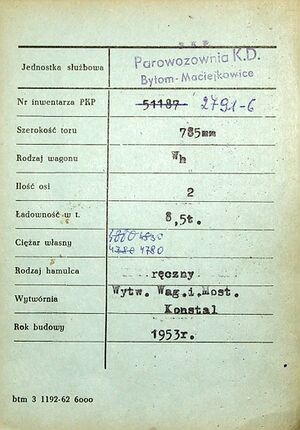 P K P
Jednostka służbowa Parowozownia K.D.
Bytom-Maciejkowice
Nr inwentarza PKP 51187 2791-6
Szerokość toru 785mm
Rodzaj wagonu Wh
Ilość osi 2
Ładowność w t. 8,5t.
Ciężar własny 4830
4780 4780
Rodzaj hamulca ręczny
Wytwórnia Wytw. Wag.i.Most.
Konstal
Rok budowy 1953r.
btm 3 1192-62 6000